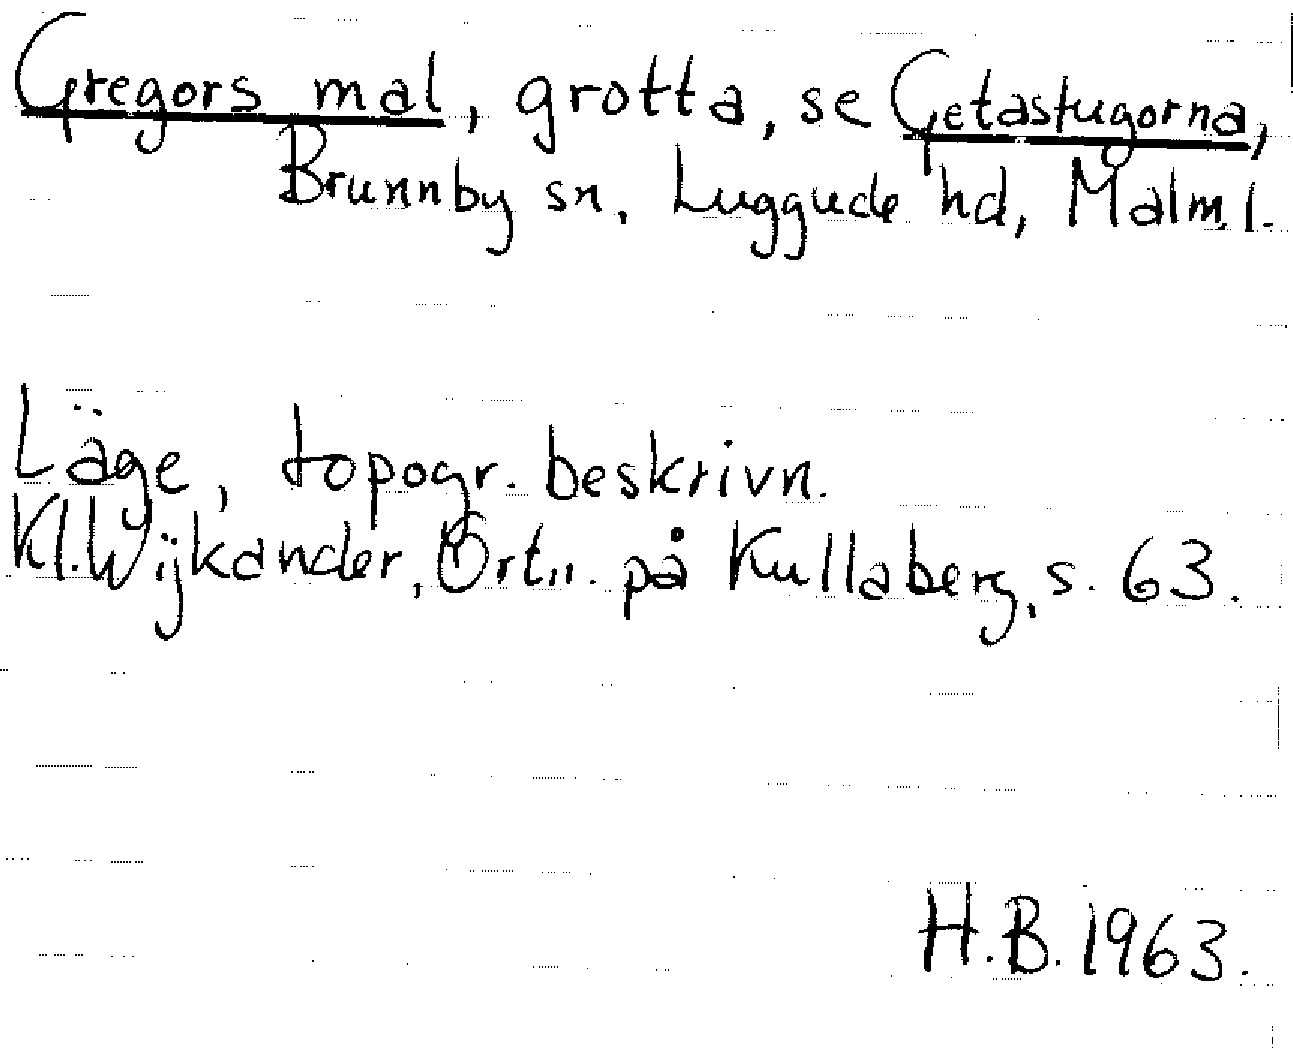 Gregors mal, grotta, se Getastugorna,
Brunnby sn, Luggude hd, Malm. l.
Läge, topogr. beskrivn.
Kl. Wijkander, Ortn. på Kullaberg, s. 63.
H.B. 1963.